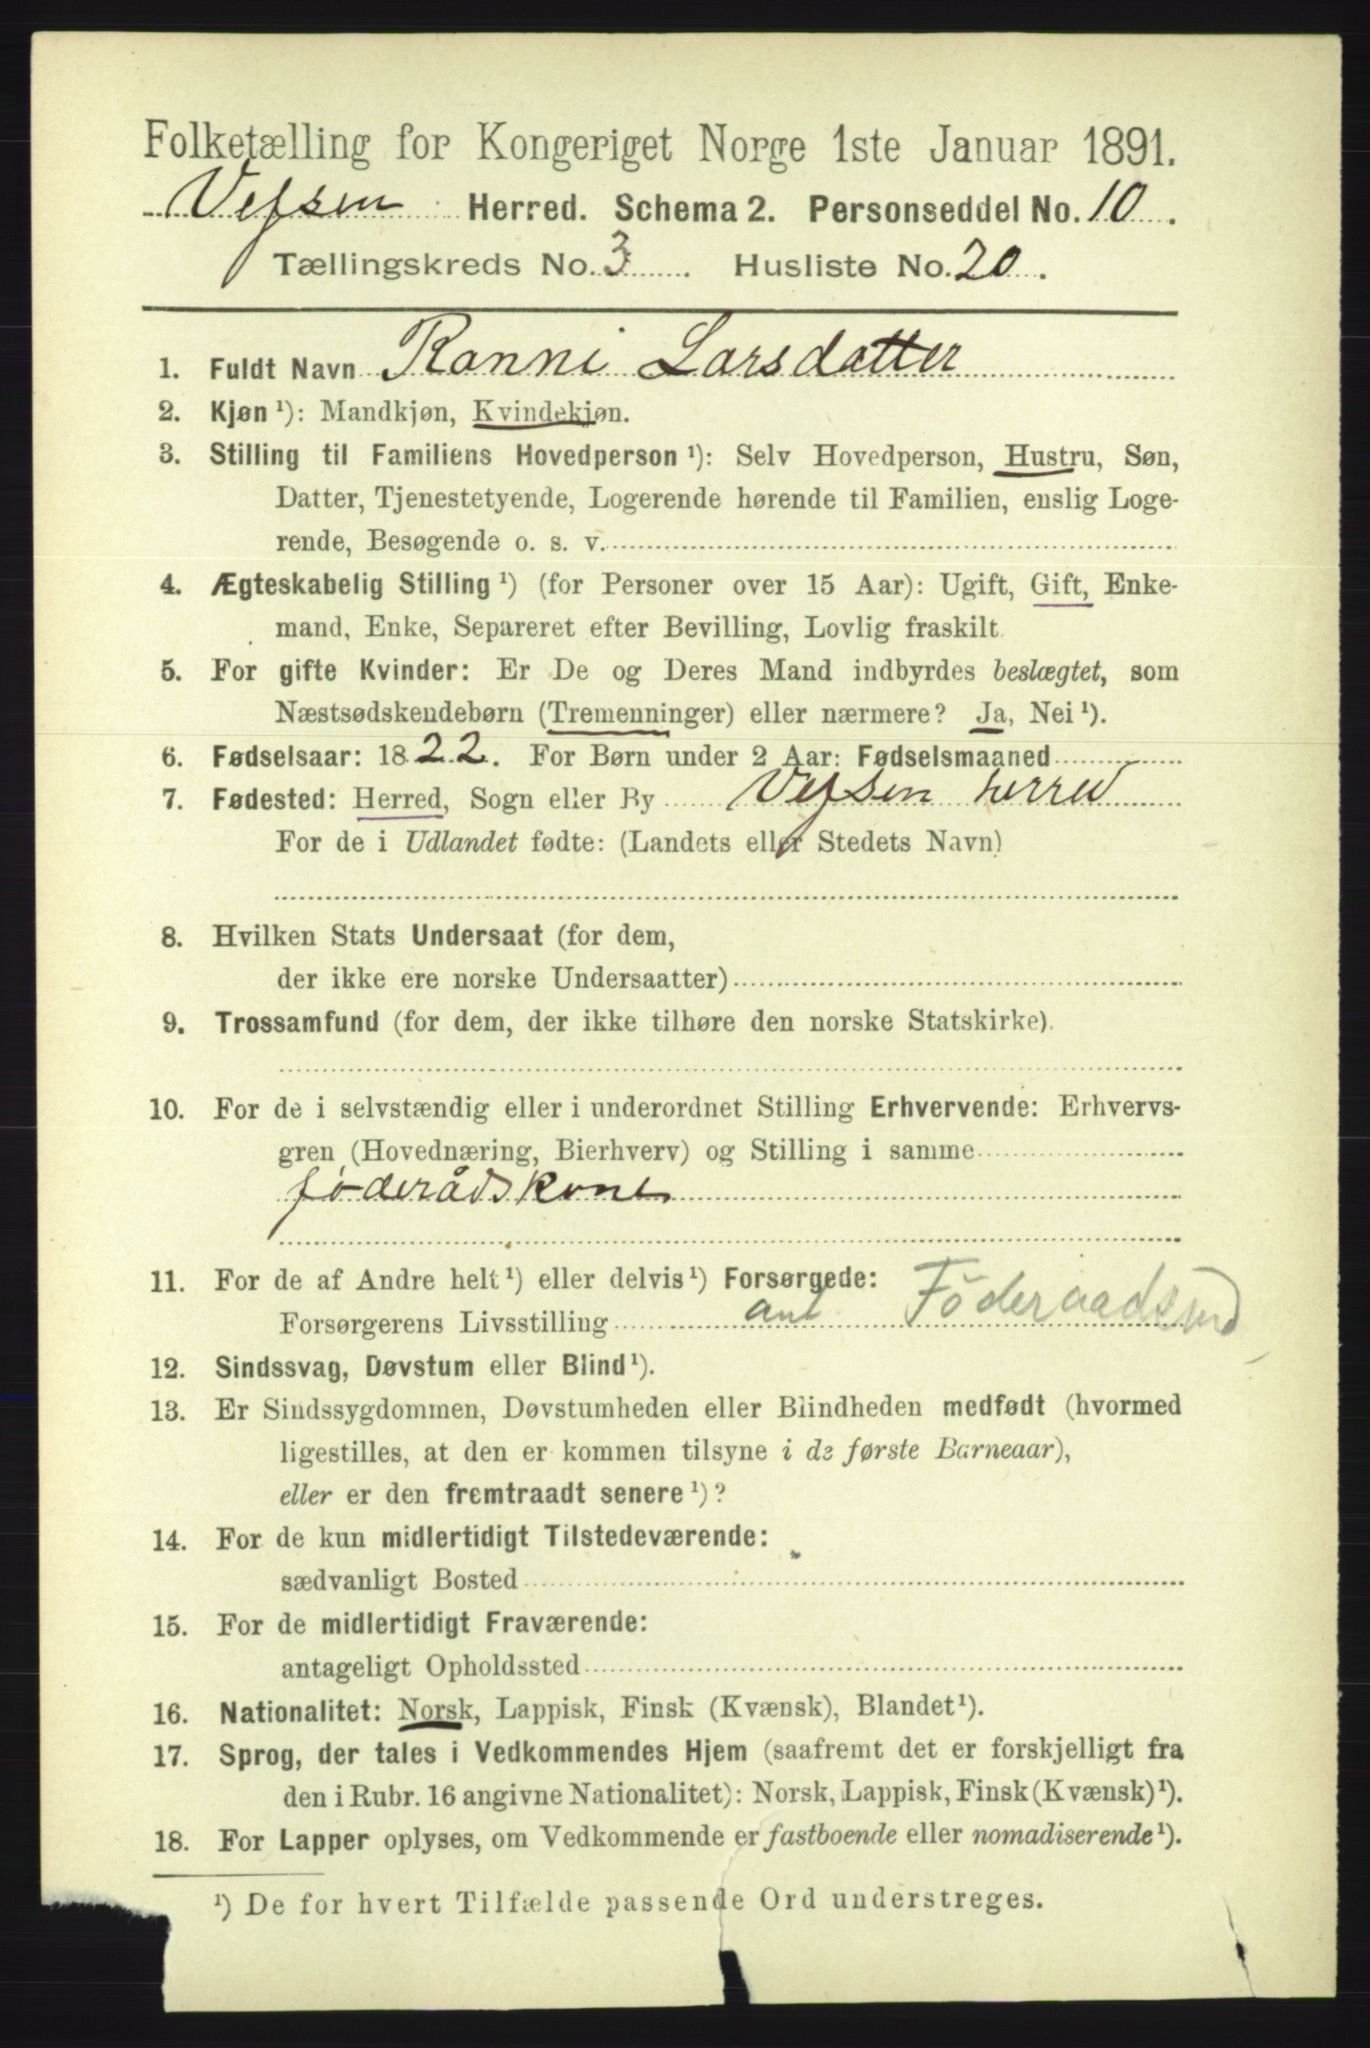 Folketælling for Kongeriget Norge 1ste Januar 1891.
Vefsen Herred. Schema 2. Personseddel No. 10.
Tællingskreds No. 3. Husliste No. 20.
1. Fuldt Navn Ranni Larsdatter
2. Kjøn ¹): Mandkjøn, Kvindekjøn.
3. Stilling til Familiens Hovedperson ¹): Selv Hovedperson, Hustru, Søn,
Datter, Tjenestetyende, Logerende hørende til Familien, enslig Loge-
rende, Besøgende o. s. v.
4. Ægteskabelig Stilling ¹) (for Personer over 15 Aar): Ugift, Gift, Enke-
mand, Enke, Separeret efter Bevilling, Lovlig fraskilt
5. For gifte Kvinder: Er De og Deres Mand indbyrdes beslægtet, som
Næstsødskendebørn (Tremenninger) eller nærmere? Ja, Nei ¹).
6. Fødselsaar: 1822. For Børn under 2 Aar: Fødselsmaaned
7. Fødested: Herred, Sogn eller By Vefsen herred
For de i Udlandet fødte: (Landets eller Stedets Navn)
8. Hvilken Stats Undersaat (for dem,
der ikke ere norske Undersaatter)
9. Trossamfund (for dem, der ikke tilhøre den norske Statskirke).
10. For de i selvstændig eller i underordnet Stilling Erhvervende: Erhvervs-
gren (Hovednæring, Bierhverv) og Stilling i samme
føderådskone
11. For de af Andre helt ¹) eller delvis ¹) Forsørgede:
Forsørgerens Livsstilling
12. Sindssvag, Døvstum eller Blind ¹).
13. Er Sindssygdommen, Døvstumheden eller Blindheden medfødt (hvormed
ligestilles, at den er kommen tilsyne i de første Barneaar),
eller er den fremtraadt senere ¹)?
14. For de kun midlertidigt Tilstedeværende:
sædvanligt Bosted
15. For de midlertidigt Fraværende:
antageligt Opholdssted
16. Nationalitet: Norsk, Lappisk, Finsk (Kvænsk), Blandet ¹).
17. Sprog, der tales i Vedkommendes Hjem (saafremt det er forskjelligt fra
den i Rubr. 16 angivne Nationalitet): Norsk, Lappisk, Finsk (Kvænsk) ¹).
18. For Lapper oplyses, om Vedkommende er fastboende eller nomadiserende ¹).
¹) De for hvert Tilfælde passende Ord understreges.